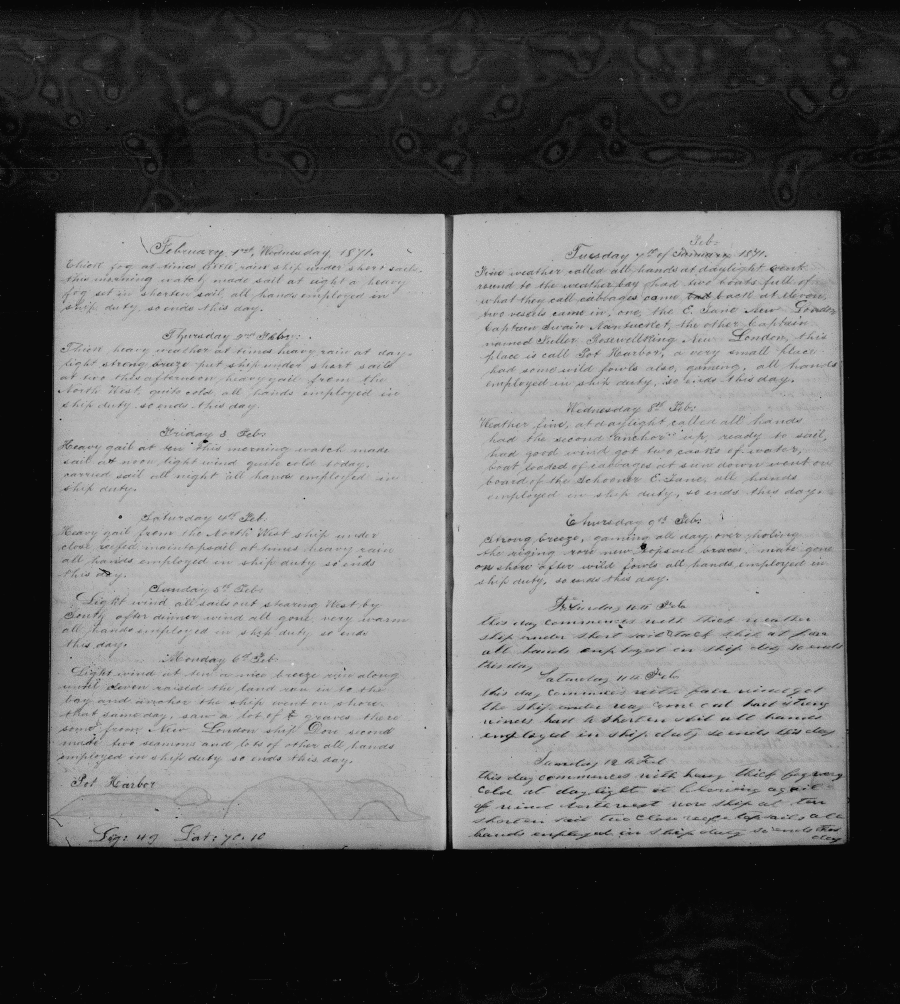 February 1st, Wednesday, 1871.
Thick fog at times little rain ship under short sail,
this morning watch made sail at eight a heavy
fog set in shorten sail all hands employed in
ship duty, so ends this day.
Thursday 2nd Feb:
Thick heavy weather at times heavy rain at day
light strong breeze put ship under short sails
at two this afternoon heavy gail from the
North West, quite cold all hands employed in
ship duty so ends this day.
Friday 3 Feb:
Heavy gail at ten this morning watch made
sail at noon, light wind quite cold today,
carried sail all night all hands employed in
ship duty.
Saturday 4th Feb.
Heavy gail from the North West ship under
close reifed maintopsail at times heavy rain
all hands employed in ship duty so ends
this day.
Sunday 5th Feb:
Light wind all sails out stearing West by
South after dinner wind all gone, very warm
all hands employed in ship duty so ends
this day.
Monday 6th Feb
Light wind at ten a nice breeze run along
until seven raised the land ran in to the
bay and anchor the ship went on shore
that same day, saw a lot of graves there
some from New London ship Dove second
mate two seamens and lots of other all hands
employed in ship duty so ends this day.
Pot Harbor
Log: 49 Lat: 70.10
Feb:
Tuesday 7th of January 1871.
Fine weather called all hands at daylight went
round to the weather bay had two boats full of
what they call cabbages came back at eleven
two vessels came in, one, the E. Jane New London
Captain Swain Nantucket, the other Captain
named Fuller Rosewell King New London, this
place is call Pot Hearbor, a very small place
had some wild fowls also, gaming, all hands
employed in ship duty, so ends this day.
Wednesday 8th Feb:
Weather fine, at daylight called all hands
had the second anchor up, ready to sail,
had good wind got two casks of water,
boat loaded of cabbages at sun down went on
board of the Schooner E. Jane, all hands
employed in ship duty, so ends this day.
Thursday 9th Feb:
Strong breeze, gaming all day, over
the riging rove new topsail braces, mate gone
on shore after wild fowls all hands employed in
ship duty, so ends this day.
10th Feb
this day commences with thick weather
ship under short sail tack ship at four
all hands employed in ship duty so ends
this day
Saturday 11th Feb
this day commences with fair
the ship under way came out had strong
winds had to shorten sail all hands
employed in ship duty so ends this day
Sunday 12th Feb
this day commences with heavy thick fog very
cold at daylight it blowing a gail
of wind west wore ship at ten
shorten sail two close reefe topsails all
hands employed in ship duty so ends this
day